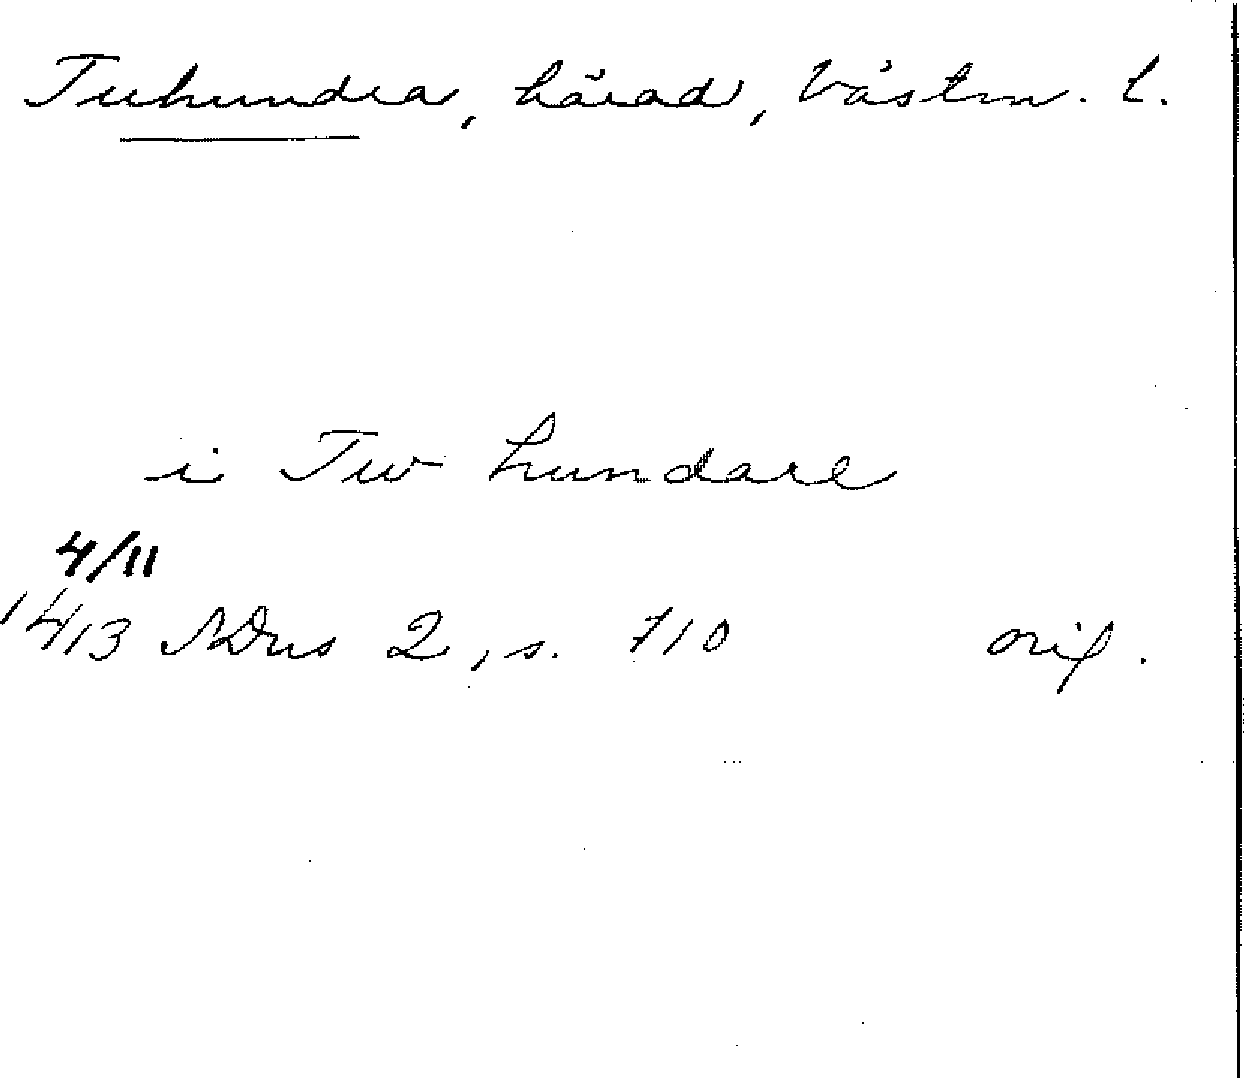 Tuhundra, härad, Västm. l.
i Tw hundare
4/11
1413 SDns 2, s. 710 orig.